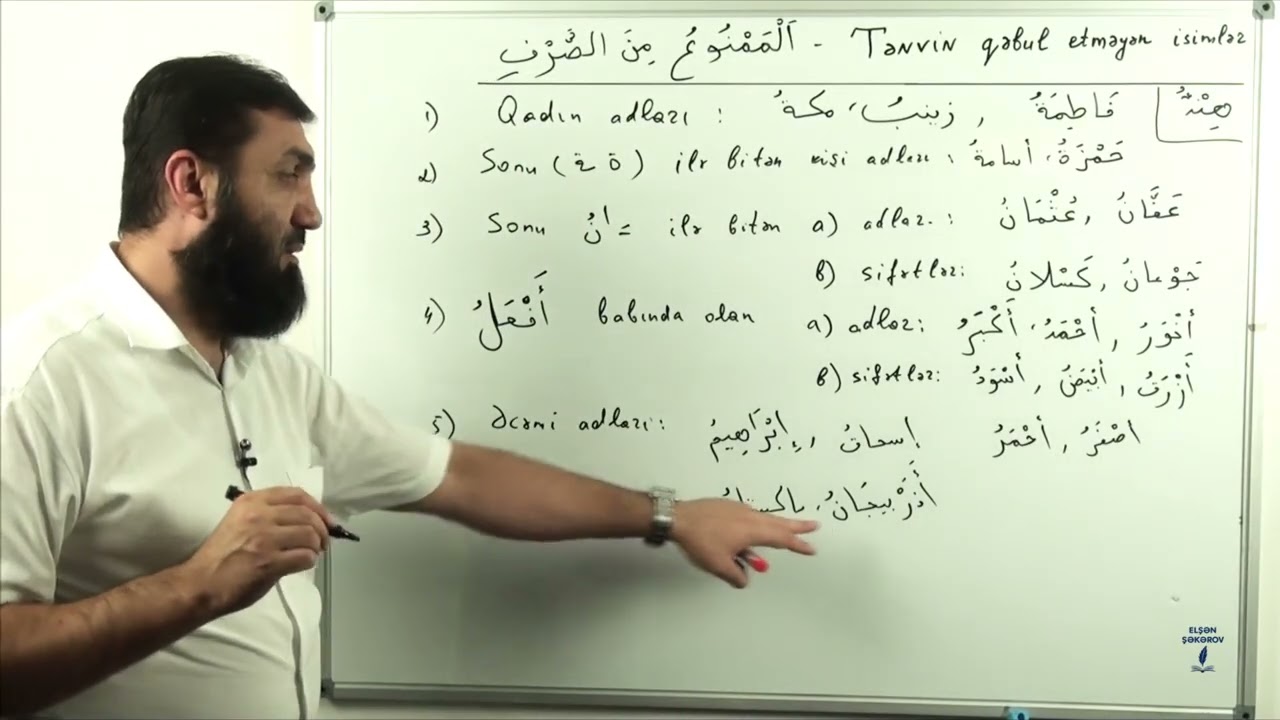 اَلْمَمْنُوعُ مِنَ الصَّرْفِ - Tənvin qəbul etməyən isimlər
1) Qadın adları : فَاطِمَةُ , زينبُ، مكةُ هِنْدٌ
2) Sonu (ة ـة) ilə bitən kişi adları : حَمْزَةُ، أسامةُ
3) Sonu انُ = ilə bitən a) adlar. : عَفَّانُ , عُثْمَانُ
b) sifətlər: جَوْعانُ , كَسْلانُ
4) أَفْعَلُ babında olan a) adlar: أَنْوَرُ , أَحْمَدُ، أَكْبَرُ
b) sifətlər: أَزْرَقُ , أَبْيَضُ , أَسْوَدُ
اصْفَرُ , أَحْمَرُ
5) Əcəmi adları: إسحاقُ , إِبْرَاهِيمُ
أَذَرْبِيجَانُ، باكستانُ
ELŞƏN
ŞƏKƏROV